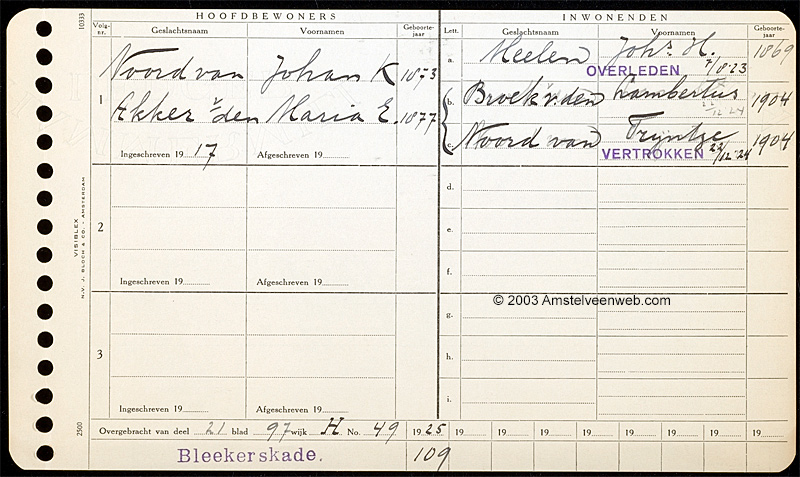 10333
HOOFDBEWONERS
INWONENDEN
Volg-nr. Geslachtsnaam Voornamen Geboorte-jaar
Lett. Geslachtsnaam Voornamen Geboorte-jaar
1
Noord van Johan K 1873
Ekker v den Maria E. 1877
Ingeschreven 1917 Afgeschreven 19
a. Meelen Johs. H. 1869
OVERLEDEN 7/8-23
b. Broek v. den Lambertus 1904
22/12 24
c. Noord van Tryntje 1904
VERTROKKEN 22/12-24
d.
2
e.
f.
Ingeschreven 19 Afgeschreven 19
© 2003 Amstelveenweb.com
g.
3
h.
i.
Ingeschreven 19 Afgeschreven 19
VISIBLEX
N.V. J. BLOCH & CO. - AMSTERDAM
2500
Overgebracht van deel 21 blad 97 wijk H No. 49 1925 19 19 19 19 19 19 19 19
Bleekerskade. 109